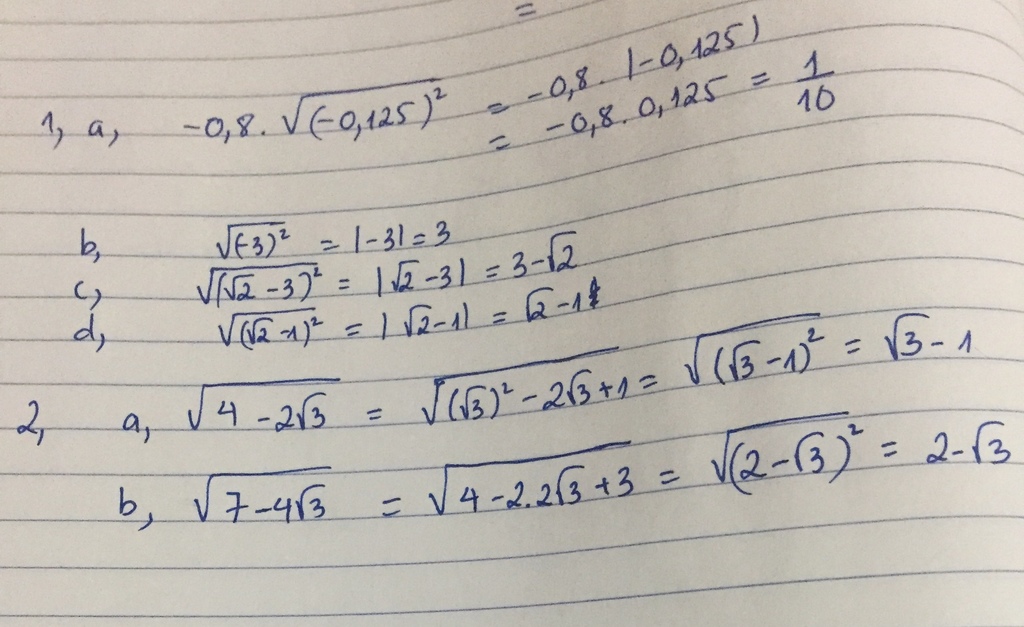 =
1, a, -0,8.√(-0,125)² = -0,8. |-0,125)
= -0,8. 0,125 = 1/10
b, √(-3)² = |-3| = 3
c, √(√2 -3)² = |√2 -3| = 3-√2
d, √(√2 -1)² = |√2-1| = √2-1
2, a, √4 -2√3 = √(√3)² -2√3+1 = √(√3-1)² = √3-1
b, √7-4√3 = √4-2.2√3+3 = √(2-√3)² = 2-√3